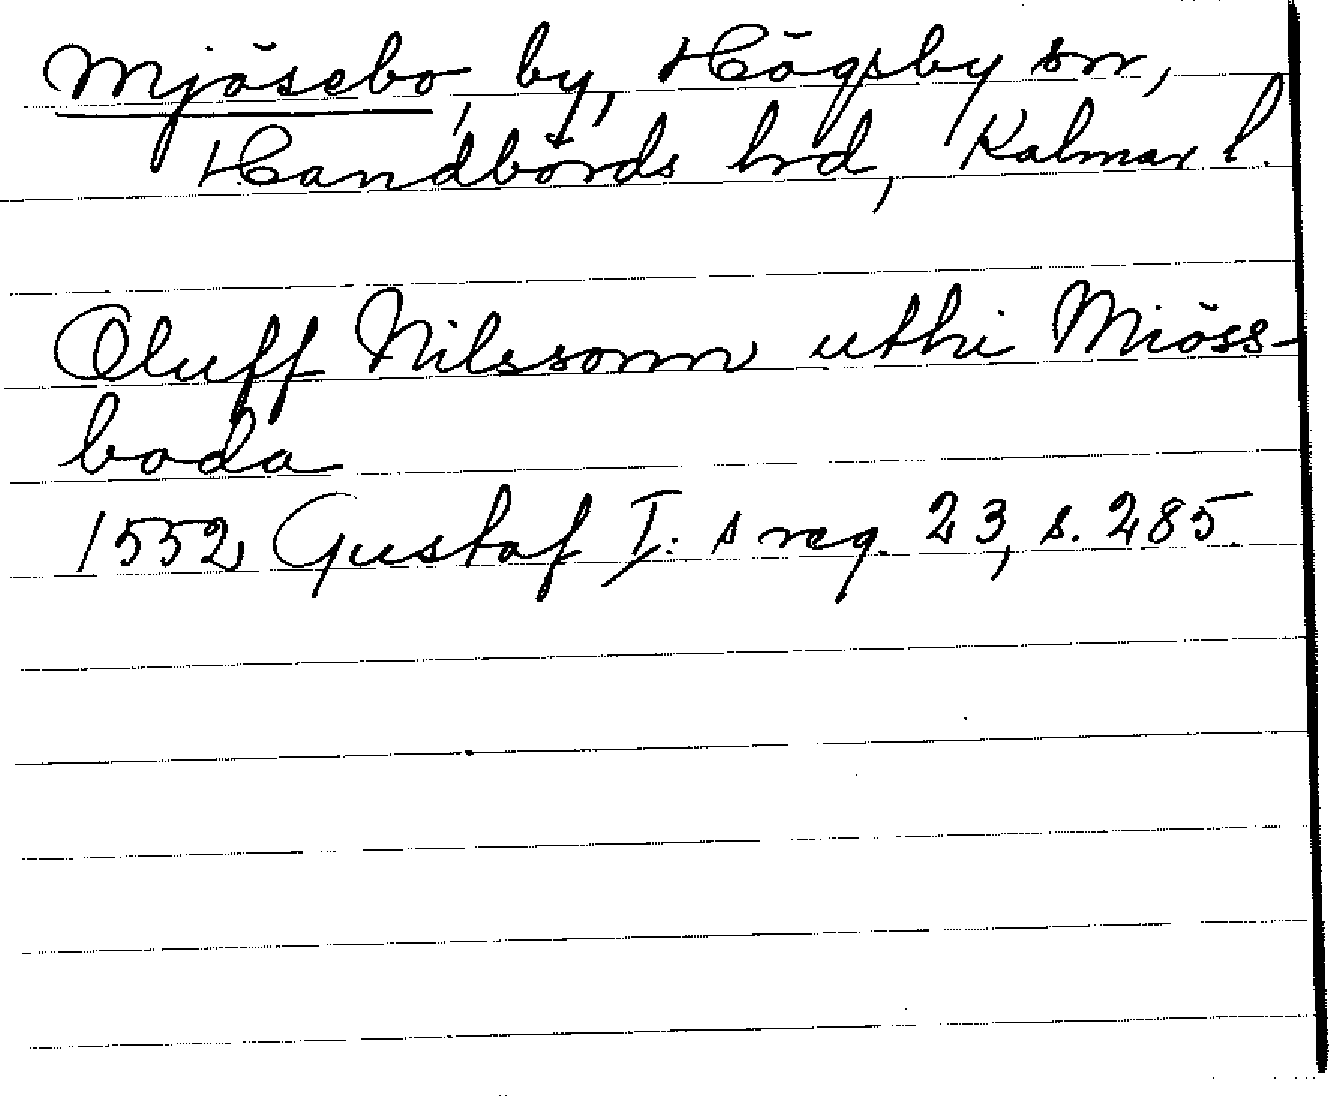 Mjösebo, by, Högsby sn,
Handbörds hrd, Kalmar l.
Oluff Nilssonn uthi Miöss-
boda
1552 Gustaf I:s reg. 23, s. 285.